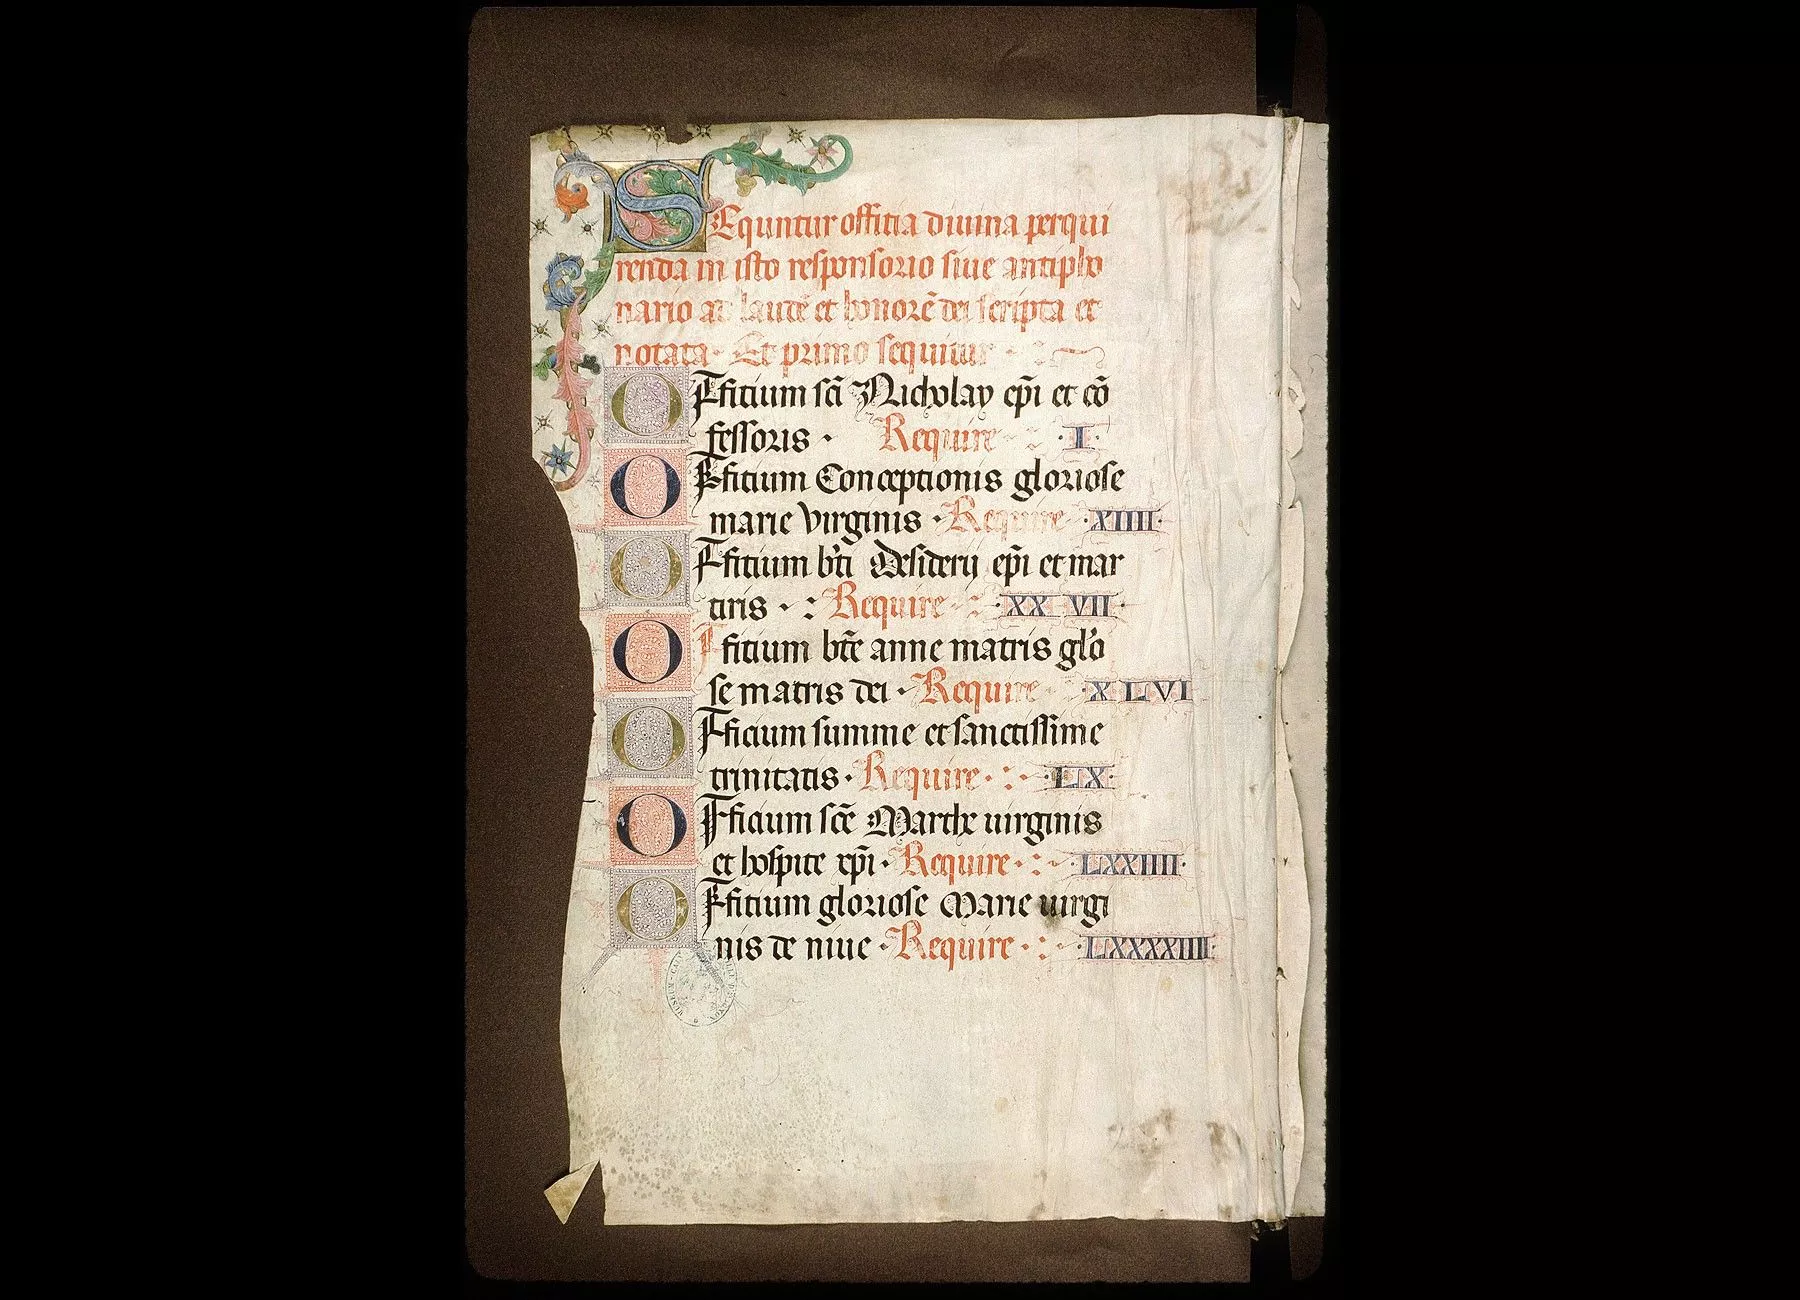 SEquntur offitia diuina perqui
renda in isto responsorio siue antipho
nario ad laudē et honorē dei scripta et
notata · Et primo sequitur
OFfitium sc̄i Nicholay ep̄i et cō
fessoris · Require · I ·
OFfitium Conceptionis gloriose
marie virginis · Require · XIIII ·
OFfitium bt̄i Desiderii ep̄i et mar
tiris · : Require · XX VII ·
OFfitium bt̄e anne matris glo
se matris dei · Require · X L VI
OFficium summe et sanctissime
trinitatis · Require · : · L X ·
OFficium sc̄e Marthe uirginis
et hospite xp̄i · Require · : · LXXIIII ·
OFfitium gloriose Marie uirgi
nis de niue · Require · : · LXXXXIIII ·